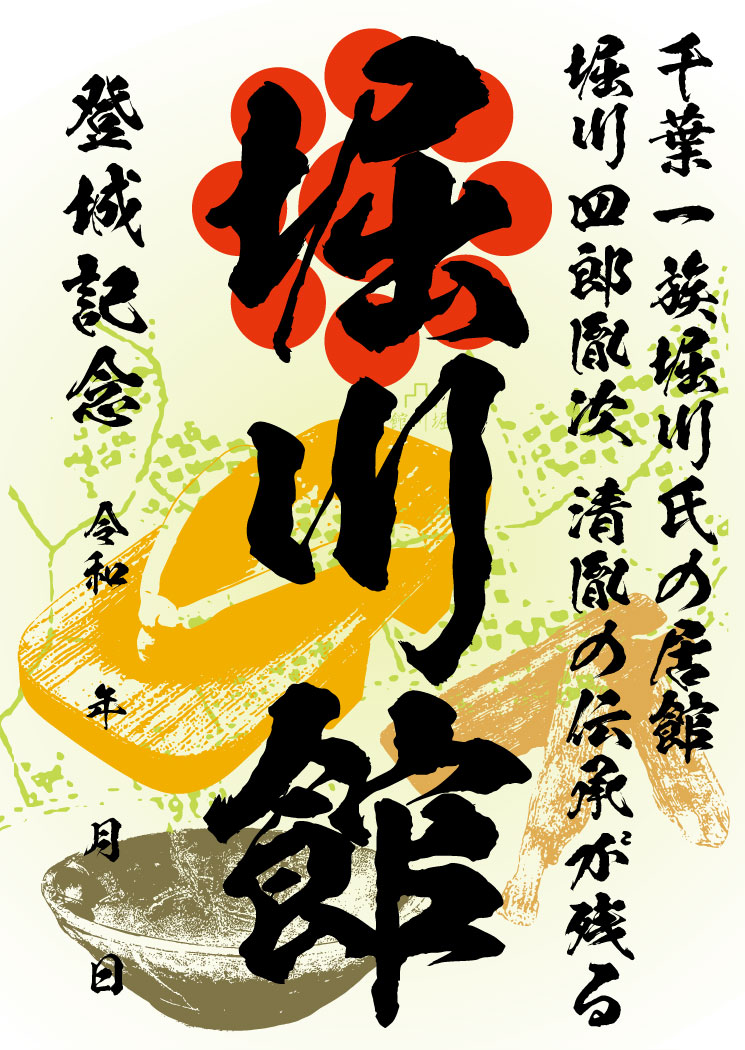 千葉一族堀川氏の居館
堀川四郎胤次 清胤の伝承が残る
堀川館
登城記念
令和 年 月 日
堀川館